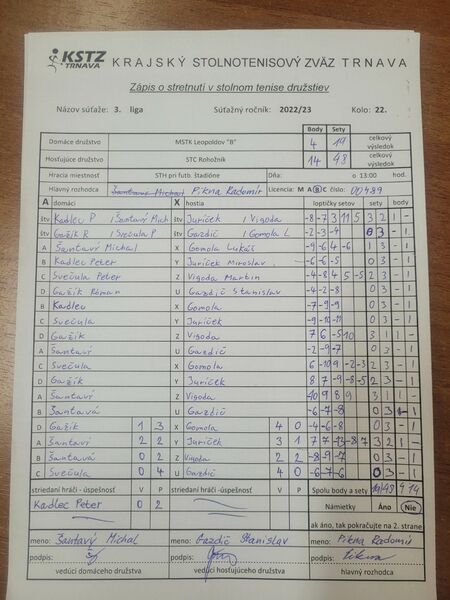 KSTZ TRNAVA KRAJSKÝ STOLNOTENISOVÝ ZVÄZ TRNAVA
Zápis o stretnutí v stolnom tenise družstiev
Názov súťaže: 3. liga Súťažný ročník: 2022/23 Kolo: 22.
Body Sety
Domáce družstvo MSTK Leopoldov "B" 4 19 celkový výsledok
Hosťujúce družstvo STC Rohožník 14 48 celkový výsledok
Hracia miestnosť STH pri futb. štadióne Dňa: o 13:00 hod.
Hlavný rozhodca Šantavý Michal Pikna Radomír Licencia: M A B C číslo: 00489
A domáci X hostia loptičky setov sety body
štv Kadlec P / Šantavý Mich štv Juríček / Vigoda -8 -7 3 11 5 3 2 1 -
štv Gažík R / Svečula P štv Gazdič / Gomola L -2 -3 -4 0 3 - 1
A Šantavý Michal X Gomola Lukáš -9 -6 4 -6 1 3 - 1
B Kadlec Peter Y Juríček Miroslav -6 -6 -5 0 3 - 1
C Svečula Peter Z Vigoda Martin -4 -8 4 5 -5 2 3 - 1
D Gažík Roman U Gazdič Stanislav -4 -2 -8 0 3 - 1
B Kadlec X Gomola -7 -9 -9 0 3 - 1
C Svečula Y Juríček -9 -10 -11 0 3 - 1
D Gažík Z Vigoda 7 6 -5 10 3 1 1 -
A Šantavý U Gazdič -2 -9 -7 0 3 - 1
C Svečula X Gomola 6 -10 9 -2 -3 2 3 - 1
D Gažík Y Juríček 8 7 -9 -8 -5 2 3 - 1
A Šantavý Z Vigoda 3 1 1 -
B Šantavá U Gazdič -6 -7 -8 0 3 - 1
D Gažík 1 3 X Gomola 4 0 -4 -6 -8 0 3 - 1
A Šantavý 2 2 Y Juríček 3 1 3 2 1 -
B Šantavá 0 2 Z Vigoda 2 2 -8 -9 -7 0 3 - 1
C Svečula 0 4 U Gazdič 4 0 -6 -7 -6 0 3 - 1
striedaní hráči - úspešnosť V P striedaní hráči - úspešnosť V P Spolu body a sety 4 14
Kadlec Peter 0 2 Námietky Áno Nie
ak áno, tak pokračujte na 2. strane
meno: Šantavý Michal meno: Gazdič Stanislav meno: Pikna Radomír
podpis: podpis: podpis:
vedúci domáceho družstva vedúci hosťujúceho družstva hlavný rozhodca